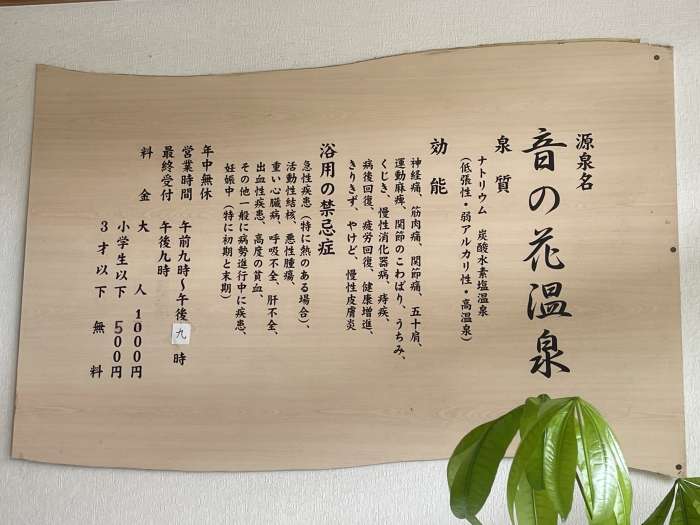 源泉名
音の花温泉
泉質
ナトリウム 炭酸水素塩温泉
(低張性・弱アルカリ性・高温泉)
効能
神経痛、筋肉痛、関節痛、五十肩、
運動麻痺、関節のこわばり、うちみ、
くじき、慢性消化器病、痔疾、
病後回復、疲労回復、健康増進、
きりきず、やけど、慢性皮膚炎
浴用の禁忌症
急性疾患(特に熱のある場合)、
活動性結核、悪性腫瘍、
重い心臓病、呼吸不全、肝不全、
出血性疾患、高度の貧血、
その他一般に病勢進行中に疾患、
妊娠中(特に初期と末期)
年中無休
営業時間 午前九時〜午後九時
最終受付 午後九時
料金 大人 1000円
小学生以下 500円
3才以下 無料